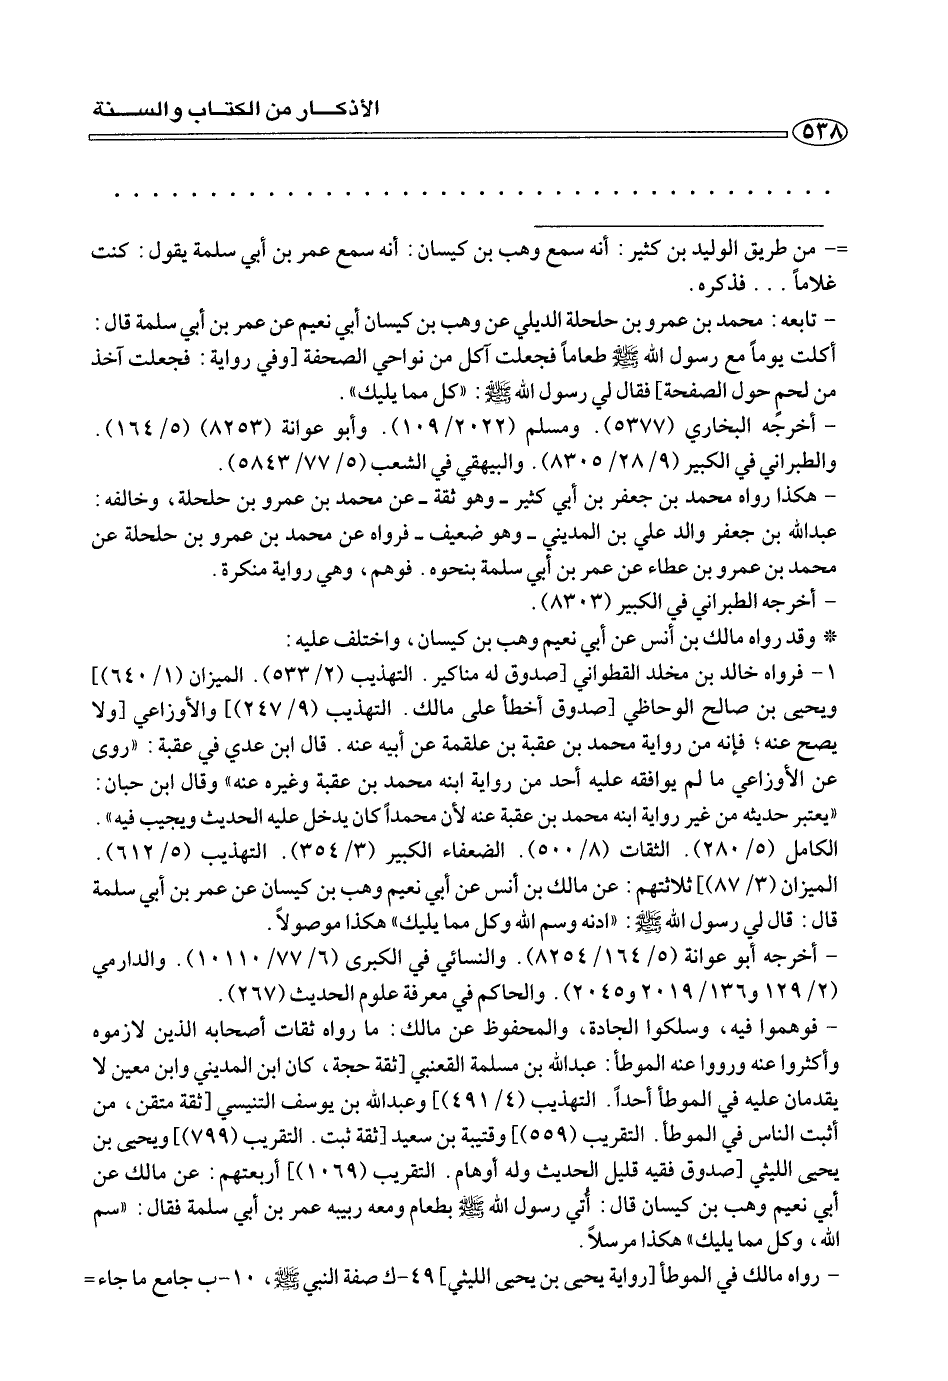 الأذكــار من الكتـاب والســنة
٥٣٨
. . . . . . . . . . . . . . . . . . . . . . . . . . . . . . . . . . . . . .
=- من طريق الوليد بن كثير: أنه سمع وهب بن كيسان: أنه سمع عمر بن أبي سلمة يقول: كنت
غلاماً . . . فذكره.
- تابعه: محمد بن عمرو بن حلحلة الديلي عن وهب بن كيسان أبي نعيم عن عمر بن أبي سلمة قال:
أكلت يوماً مع رسول الله ﷺ طعاماً فجعلت آكل من نواحي الصحفة [وفي رواية: فجعلت آخذ
من لحمٍ حول الصفحة] فقال لي رسول الله ﷺ: «كل مما يليك».
- أخرجه البخاري (٥٣٧٧). ومسلم (٢٠٢٢/ ١٠٩). وأبو عوانة (٨٢٥٣) (٥/ ١٦٤).
والطبراني في الكبير (٩/ ٢٨/ ٨٣٠٥). والبيهقي في الشعب (٥/ ٧٧/ ٥٨٤٣).
- هكذا رواه محمد بن جعفر بن أبي كثير ـ وهو ثقة ـ عن محمد بن عمرو بن حلحلة، وخالفه:
عبدالله بن جعفر والد علي بن المديني ـ وهو ضعيف ـ فرواه عن محمد بن عمرو بن حلحلة عن
محمد بن عمرو بن عطاء عن عمر بن أبي سلمة بنحوه. فوهم، وهي رواية منكرة.
- أخرجه الطبراني في الكبير (٨٣٠٣).
* وقد رواه مالك بن أنس عن أبي نعيم وهب بن كيسان، واختلف عليه:
١- فرواه خالد بن مخلد القطواني [صدوق له مناكير. التهذيب (٢/ ٥٣٣). الميزان (١/ ٦٤٠)]
ويحيى بن صالح الوحاظي [صدوق أخطأ على مالك. التهذيب (٩/ ٢٤٧)] والأوزاعي [ولا
يصح عنه؛ فإنه من رواية محمد بن عقبة بن علقمة عن أبيه عنه. قال ابن عدي في عقبة: «روى
عن الأوزاعي ما لم يوافقه عليه أحد من رواية ابنه محمد بن عقبة وغيره عنه» وقال ابن حبان:
«يعتبر حديثه من غير رواية ابنه محمد بن عقبة عنه لأن محمداً كان يدخل عليه الحديث ويجيب فيه».
الكامل (٥/ ٢٨٠). الثقات (٨/ ٥٠٠). الضعفاء الكبير (٣/ ٣٥٤). التهذيب (٥/ ٦١٢).
الميزان (٣/ ٨٧)] ثلاثتهم: عن مالك بن أنس عن أبي نعيم وهب بن كيسان عن عمر بن أبي سلمة
قال: قال لي رسول الله ﷺ: «ادنه وسم الله وكل مما يليك» هكذا موصولاً.
- أخرجه أبو عوانة (٥/ ١٦٤/ ٨٢٥٤). والنسائي في الكبرى (٦/ ٧٧/ ١٠١١٠). والدارمي
(٢/ ١٢٩ و١٣٦/ ٢٠١٩ و٢٠٤٥). والحاكم في معرفة علوم الحديث (٢٦٧).
- فوهموا فيه، وسلكوا الجادة، والمحفوظ عن مالك: ما رواه ثقات أصحابه الذين لازموه
وأكثروا عنه ورووا عنه الموطأ: عبدالله بن مسلمة القعنبي [ثقة حجة، كان ابن المديني وابن معين لا
يقدمان عليه في الموطأ أحداً. التهذيب (٤/ ٤٩١)] وعبدالله بن يوسف التنيسي [ثقة متقن، من
أثبت الناس في الموطأ. التقريب (٥٥٩)] وقتيبة بن سعيد [ثقة ثبت. التقريب (٧٩٩)] ويحيى بن
يحيى الليثي [صدوق فقيه قليل الحديث وله أوهام. التقريب (١٠٦٩)] أربعتهم: عن مالك عن
أبي نعيم وهب بن كيسان قال: أُتي رسول الله ﷺ بطعام ومعه ربيبه عمر بن أبي سلمة فقال: «سم
الله، وكل مما يليك» هكذا مرسلاً.
- رواه مالك في الموطأ [رواية يحيى بن يحيى الليثي] ٤٩-ك صفة النبي ﷺ، ١٠-ب جامع ما جاء=